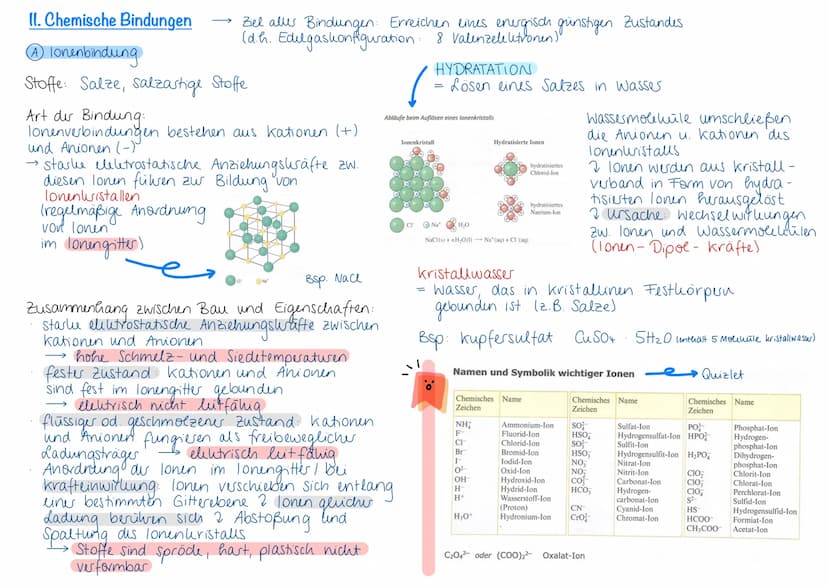 II. Chemische Bindungen → Ziel aller Bindungen: Erreichen eines energisch günstigen Zustandes
(d.h. Edelgaskonfiguration: 8 Valenzelektronen)
(A) Ionenbindung
Stoffe: Salze, salzartige Stoffe
Art der Bindung:
Ionenverbindungen bestehen aus Kationen (+)
und Anionen (-)
→ starke elektrostatische Anziehungskräfte zw.
diesen Ionen führen zur Bildung von
Ionenkristallen
(regelmäßige Anordnung
von Ionen
im Ionengitter)
Cl⁻ Na⁺
Bsp. NaCl
Zusammenhang zwischen Bau und Eigenschaften:
· starke elektrostatische Anziehungskräfte zwischen
Kationen und Anionen
→ hohe Schmelz- und Siedetemperaturen
· fester Zustand: Kationen und Anionen
sind fest im Ionengitter gebunden
→ elektrisch nicht leitfähig
· flüssiger od. geschmolzener Zustand: Kationen
und Anionen fungieren als freibeweglicher
Ladungsträger → elektrisch leitfähig
· Anordnung der Ionen im Ionengitter / bei
Krafteinwirkung: Ionen verschieben sich entlang
einer bestimmten Gitterebene Ionen gleicher
Ladung berühren sich Abstoßung und
Spaltung des Ionenkristalls
→ Stoffe sind spröde, hart, plastisch nicht
verformbar
HYDRATATION
= Lösen eines Salzes in Wasser
Abläufe beim Auflösen eines Ionenkristalls
Ionenkristall
Hydratisierte Ionen
hydratisiertes
Chlorid-Ion
hydratisiertes
Natrium-Ion
Cl⁻ Na⁺ H₂O
NaCl(s) + nH₂O(l) → Na⁺(aq) + Cl⁻(aq)
Wassermoleküle umschließen
die Anionen u. Kationen des
Ionenkristalls
Ionen werden aus Kristall-
verband in Form von hydra-
tisierten Ionen herausgelöst
Ursache: Wechselwirkungen
zw. Ionen und Wassermolekülen
(Ionen-Dipol-Kräfte)
Kristallwasser
= Wasser, das in kristallinen Festkörpern
gebunden ist (z.B. Salze)
Bsp: Kupfersulfat CuSO₄ · 5H₂O (enthält 5 Moleküle Kristallwasser)
Namen und Symbolik wichtiger Ionen → Quizlet
Chemisches Zeichen Name Chemisches Zeichen Name Chemisches Zeichen Name
NH₄⁺ Ammonium-Ion
F⁻ Fluorid-Ion
Cl⁻ Chlorid-Ion
Br⁻ Bromid-Ion
I⁻ Iodid-Ion
O²⁻ Oxid-Ion
OH⁻ Hydroxid-Ion
H⁻ Hydrid-Ion
H⁺ Wasserstoff-Ion
(Proton)
H₃O⁺ Hydronium-Ion
SO₄²⁻ Sulfat-Ion
HSO₄⁻ Hydrogensulfat-Ion
SO₃²⁻ Sulfit-Ion
HSO₃⁻ Hydrogensulfit-Ion
NO₃⁻ Nitrat-Ion
NO₂⁻ Nitrit-Ion
CO₃²⁻ Carbonat-Ion
HCO₃⁻ Hydrogen-
carbonat-Ion
CN⁻ Cyanid-Ion
CrO₄²⁻ Chromat-Ion
PO₄³⁻ Phosphat-Ion
HPO₄²⁻ Hydrogen-
phosphat-Ion
H₂PO₄⁻ Dihydrogen-
phosphat-Ion
ClO₂⁻ Chlorit-Ion
ClO₃⁻ Chlorat-Ion
ClO₄⁻ Perchlorat-Ion
S²⁻ Sulfid-Ion
HS⁻ Hydrogensulfid-Ion
HCOO⁻ Formiat-Ion
CH₃COO⁻ Acetat-Ion
C₂O₄²⁻ oder (COO)₂²⁻ Oxalat-Ion